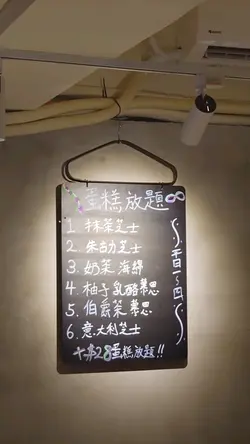 蛋糕放題
1. 抹茶芝士
2. 朱古力芝士
3. 奶茶海綿
4. 柚子乳酪慕思
5. 伯爵茶慕思
6. 意大利芝士
十$28蛋糕放題!!
星期一~四